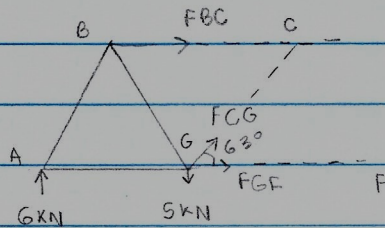 B FBC C
FCG
A G 63°
FGF F
6KN 5KN